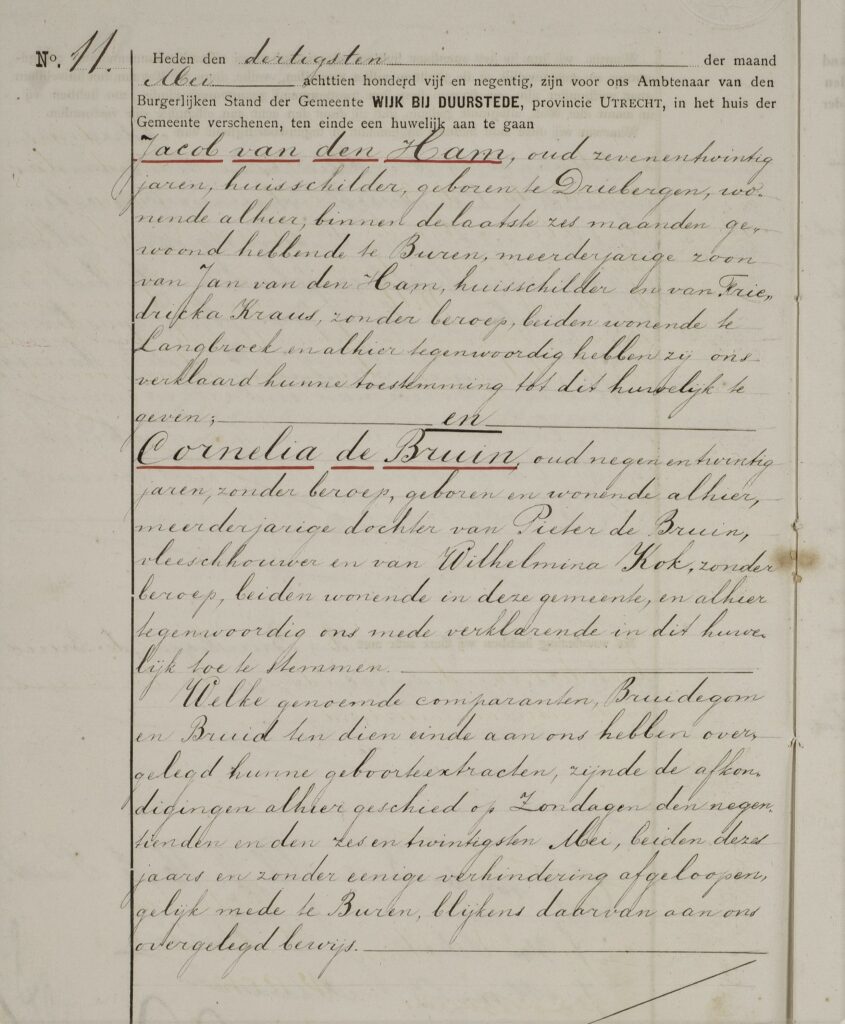 No. 11. Heden den dertigsten der maand
Mei achttien honderd vijf en negentig, zijn voor ons Ambtenaar van den
Burgerlijken Stand der Gemeente WIJK BIJ DUURSTEDE, provincie UTRECHT, in het huis der
Gemeente verschenen, ten einde een huwelijk aan te gaan
Jacob van den Ham, oud zevenentwintig
jaren, huisschilder, geboren te Driebergen, wo-
nende alhier, binnen de laatste zes maanden ge-
woond hebbende te Buren, meerderjarige zoon
van Jan van den Ham, huisschilder en van Frie-
dricka Kraus, zonder beroep, beiden wonende te
Langbroek en alhier tegenwoordig hebben zij ons
verklaard hunne toestemming tot dit huwelijk te
geven; en
Cornelia de Bruin, oud negenentwintig
jaren, zonder beroep, geboren en wonende alhier,
meerderjarige dochter van Pieter de Bruin,
vleeschhouwer en van Wilhelmina Kok, zonder
beroep, beiden wonende in deze gemeente, en alhier
tegenwoordig ons mede verklarende in dit huwe-
lijk toe te stemmen.
Welke genoemde comparanten, Bruidegom
en Bruid ten dien einde aan ons hebben over-
gelegd hunne geboorteextracten, zijnde de afkon-
digingen alhier geschied op Zondagen den negen-
tienden en den zesentwintigsten Mei, beiden dezes
jaars en zonder eenige verhindering afgeloopen,
gelijk mede te Buren, blijkens daarvan aan ons
overgelegd bewijs.